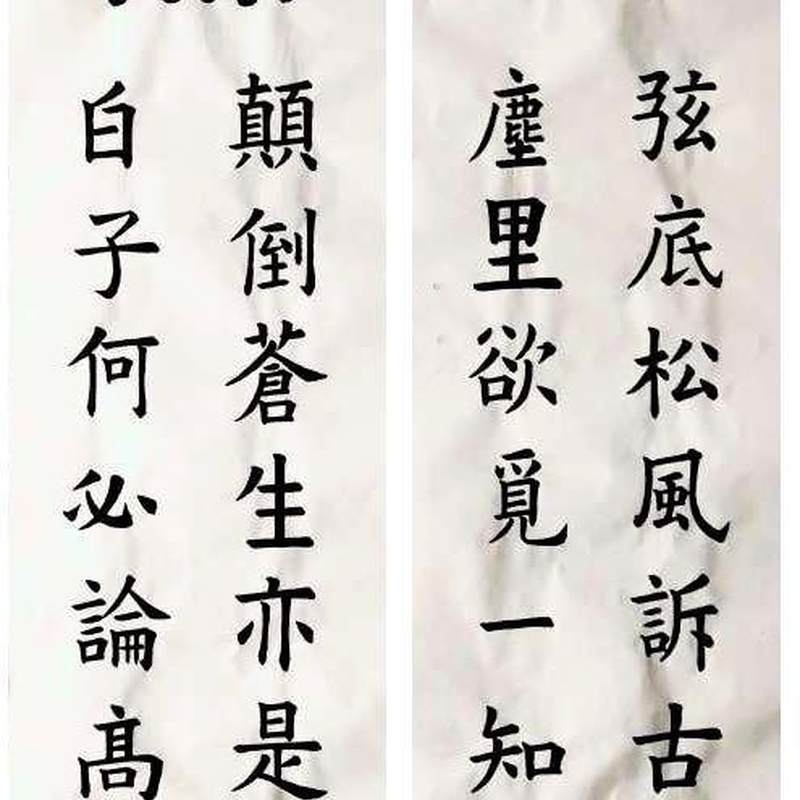 弦底松風訴古
塵里欲覓一知
顛倒蒼生亦是
白子何必論高